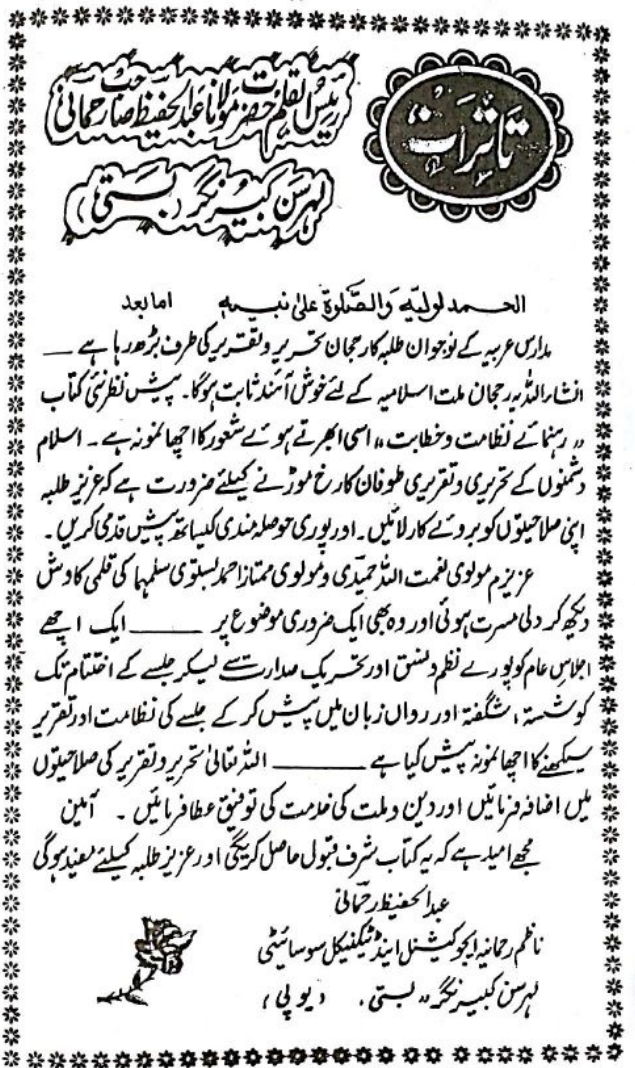 تأثرات
رئیس القلم حضرت مولانا عبدالحفیظ صاحب رحمانی
لہرسن کبیر نگر (بستی)
الحمد لولیہ والصلوۃ علیٰ نبیہ اما بعد
مدارس عربیہ کے نوجوان طلبہ کا رجحان تحریر و تقریر کی طرف بڑھ رہا ہے ــــ
انشاء اللہ یہ رجحان ملت اسلامیہ کے لئے خوش آئند ثابت ہوگا۔ پیش نظر نئی کتاب
،، رہنمائے نظامت وخطابت ،، اسی ابھرتے ہوئے شعور کا اچھا نمونہ ہے ۔ اسلام
دشمنوں کے تحریری و تقریری طوفان کا رخ موڑنے کیلئے ضرورت ہے کہ عزیز طلبہ
اپنی صلاحیتوں کو بروئے کار لائیں ۔ اور پوری حوصلہ مندی کیساتھ پیش قدمی کریں ۔
عزیزم مولوی نعمت اللہ حمیدی و مولوی ممتاز احمد بستوی سلمہا کی قلمی کاوش
دیکھ کر دلی مسرت ہوئی اور وہ بھی ایک ضروری موضوع پر ـــــــ ایک اچھے
اجلاس عام کو پورے نظم و نسق اور تحریک صدارت سے لیکر جلسے کے اختتام تک
کو شستہ ، شگفتہ اور رواں زبان میں پیش کر کے جلسے کی نظامت اور تقریر
سیکھنے کا اچھا نمونہ پیش کیا ہے ـــــــــ اللہ تعالیٰ تحریر و تقریر کی صلاحیتوں
میں اضافہ فرمائیں اور دین و ملت کی خدمت کی توفیق عطا فرمائیں ۔ آمین
مجھے امید ہے کہ یہ کتاب شرف قبول حاصل کریگی اور عزیز طلبہ کیلئے مفید ہوگی
عبد الحفیظ رحمانی
ناظم رحمانیہ ایجوکیشنل اینڈ ٹیکنیکل سوسائیٹی
لہرسن کبیر نگر ،، بستی ، (یوپی)